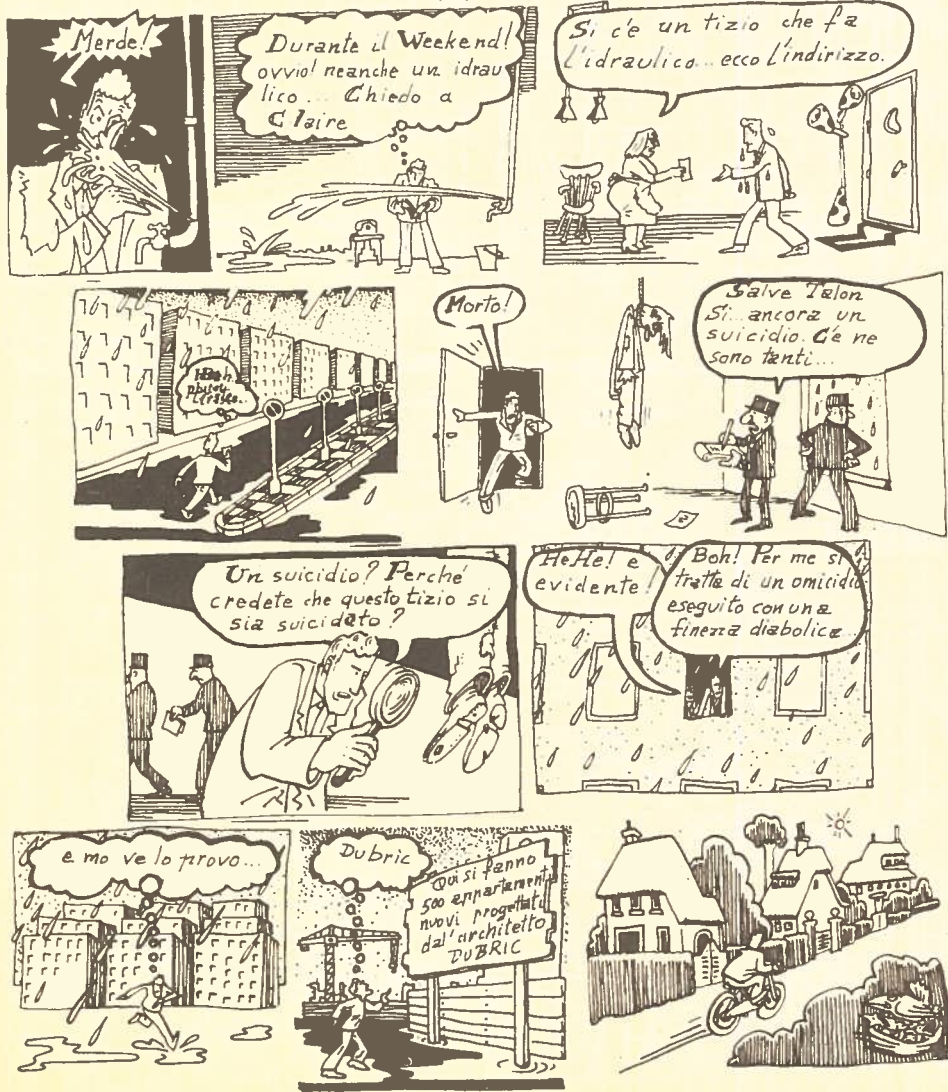 Merde!
Durante il Weekend!
ovvio! neanche un idrau
lico... Chiedo a
Claire
Si c'è un tizio che fa
l'idraulico... ecco l'indirizzo.
Morto!
Salve Talon
Si... ancora un
suicidio. C'è ne
sono tanti...
Un suicidio? Perché
credete che questo tizio si
sia suicidato?
HeHe! e
evidente!
Boh! Per me si
tratta di un omicidio
eseguito con una
finezza diabolica...
e mo ve lo provo...
Dubric
Qui si fanno
500 appartamenti
nuovi progettati
dal'architetto
DUBRIC